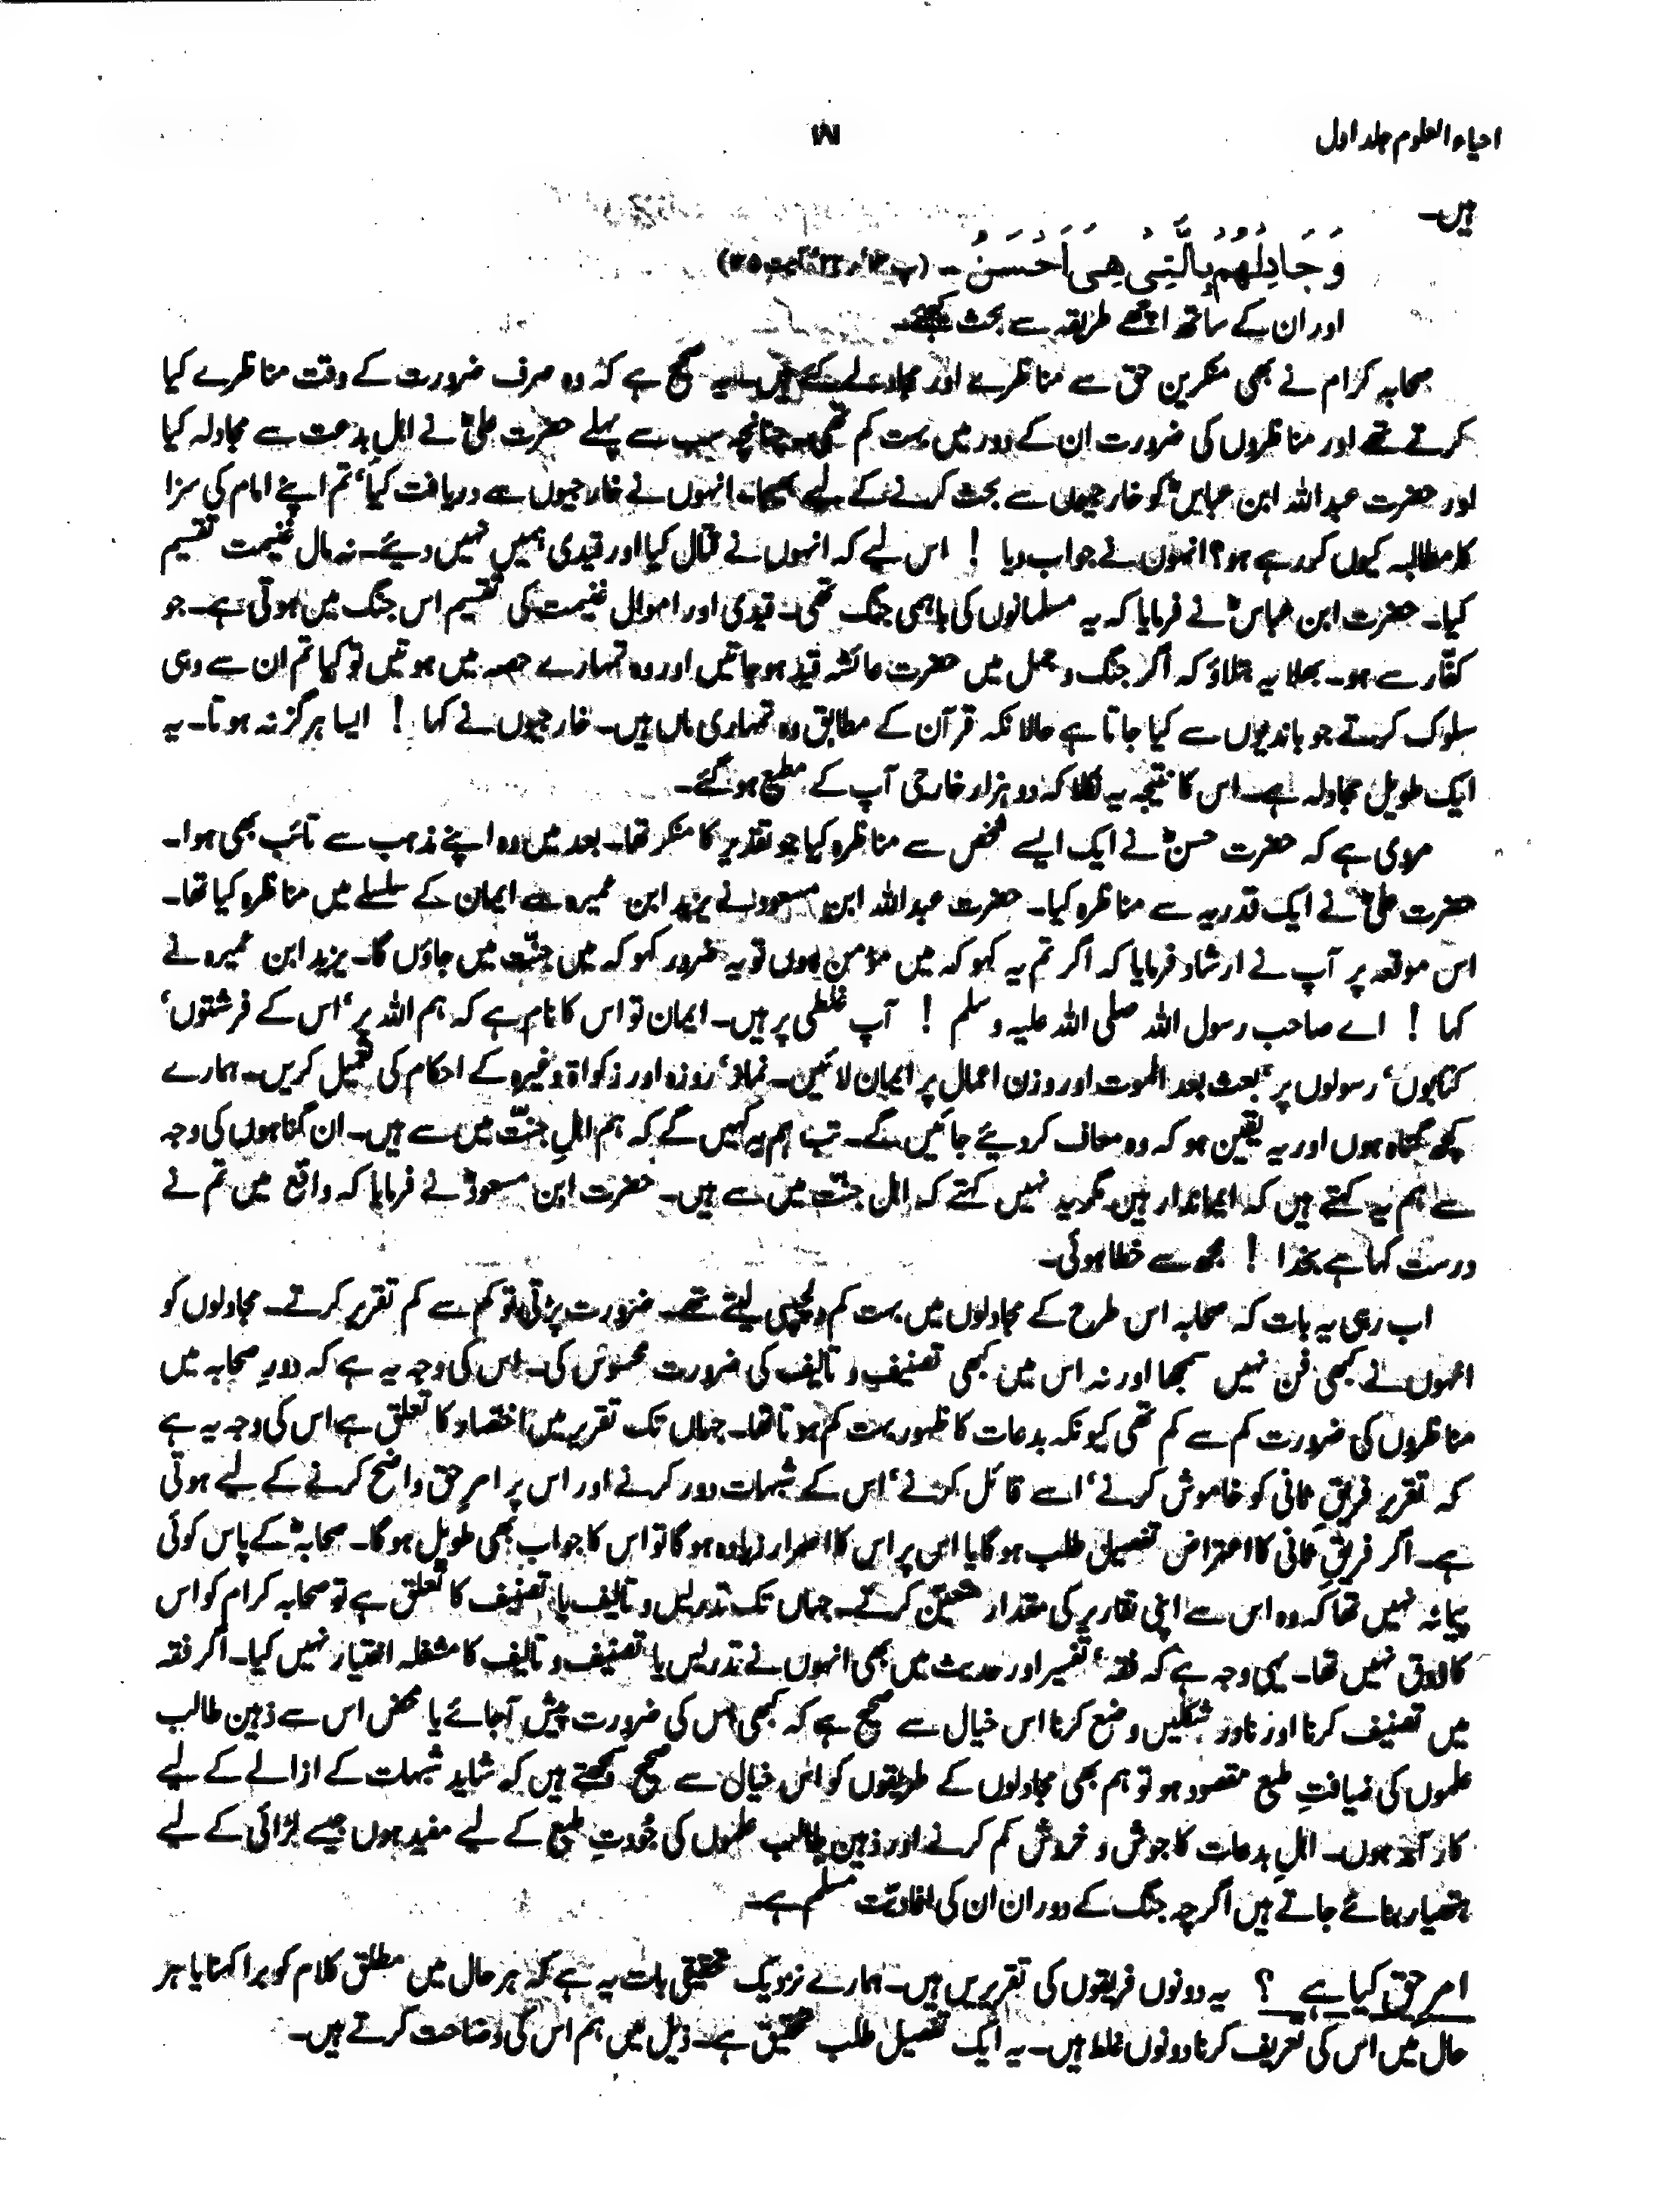 احیاء العلوم جلد اول
ہیں۔
وَجَادِلْهُمْ بِالَّتِیْ هِیَ اَحْسَنُ۔ (پ ۱۴ ر ۲۲ آیت ۱۲۵)
اور ان کے ساتھ اچھے طریقہ سے بحث کیجئے۔
صحابہ کرام نے بھی منکرین حق سے مناظرے اور مجادلے کئے ہیں۔ یہ صحیح ہے کہ وہ صرف ضرورت کے وقت مناظرے کیا
کرتے تھے اور مناظروں کی ضرورت ان کے دور میں بہت کم تھی۔ چنانچہ سب سے پہلے حضرت علیؓ نے اہلِ بدعت سے مجادلہ کیا
اور حضرت عبداللہ ابن عباسؓ کو خارجیوں سے بحث کرنے کے لیے بھیجا۔ انہوں نے خارجیوں سے دریافت کیا' تم اپنے امام کی سزا
کا مطالبہ کیوں کر رہے ہو؟ انہوں نے جواب دیا ! اس لیے کہ انہوں نے قتال کیا اور قیدی ہمیں نہیں دیئے۔ نہ مال غنیمت تقسیم
کیا۔ حضرت ابن عباسؓ نے فرمایا کہ یہ مسلمانوں کی باہمی جنگ تھی۔ قیدی اور اموال غنیمت کی تقسیم اس جنگ میں ہوتی ہے۔ جو
کفّار سے ہو۔ بھلا یہ بتلاؤ کہ اگر جنگ و جمل میں حضرت عائشہ قید ہو جاتیں اور وہ تمہارے حصہ میں ہوتیں تو کیا تم ان سے وہی
سلوک کرتے جو باندیوں سے کیا جاتا ہے حالانکہ قرآن کے مطابق وہ تمہاری ماں ہیں۔ خارجیوں نے کہا ! ایسا ہرگز نہ ہوتا۔ یہ
ایک طویل مجادلہ ہے۔ اس کا نتیجہ یہ نکلا کہ دو ہزار خارجی آپ کے مطیع ہو گئے۔
مروی ہے کہ حضرت حسنؓ نے ایک ایسے شخص سے مناظرہ کیا جو تقدیر کا منکر تھا۔ بعد میں وہ اپنے مذہب سے تائب بھی ہوا۔
حضرت علیؓ نے ایک قدریہ سے مناظرہ کیا۔ حضرت عبداللہ ابن مسعود نے یزید ابن عمیرہ سے ایمان کے سلسلے میں مناظرہ کیا تھا۔
اس موقعہ پر آپ نے ارشاد فرمایا کہ اگر تم یہ کہو کہ میں مؤمن ہوں تو یہ ضرور کہو کہ میں جنّت میں جاؤں گا۔ یزید ابن عمیرہ نے
کہا ! اے صاحب رسول اللہ صلی اللہ علیہ وسلم ! آپ غلطی پر ہیں۔ ایمان تو اس کا نام ہے کہ ہم اللہ پر' اس کے فرشتوں'
کتابوں' رسولوں پر' بعث بعد الموت اور وزن اعمال پر ایمان لائیں۔ نماز' روزہ اور زکواۃ وغیرہ کے احکام کی تعمیل کریں۔ ہمارے
کچھ گناہ ہوں اور یہ یقین ہو کہ وہ معاف کر دیئے جائیں گے۔ تب ہم یہ کہیں گے کہ ہم اہلِ جنّت میں سے ہیں۔ ان گناہوں کی وجہ
سے ہم یہ کہتے ہیں کہ ایماندار ہیں مگر یہ نہیں کہتے کہ اہل جنّت میں سے ہیں۔ حضرت ابن مسعودؓ نے فرمایا کہ واقع میں تم نے
درست کہا ہے بخدا ! مجھ سے خطا ہوئی۔
اب رہی یہ بات کہ صحابہ اس طرح کے مجادلوں میں بہت کم دلچسپی لیتے تھے۔ ضرورت پڑتی تو کم سے کم تقریر کرتے۔ مجادلوں کو
انہوں نے کبھی فن نہیں سمجھا اور نہ اس میں کبھی تصنیف و تالیف کی ضرورت محسوس کی۔ اس کی وجہ یہ ہے کہ دورِ صحابہ میں
مناظروں کی ضرورت کم سے کم تھی کیونکہ بدعات کا ظہور بہت کم ہوتا تھا۔ جہاں تک تقریر میں اختصار کا تعلق ہے اس کی وجہ یہ ہے
کہ تقریر فریقِ ثانی کو خاموش کرنے' اسے قائل کرنے' اس کے شبہات دور کرنے اور اس پر امرِ حق واضح کرنے کے لیے ہوتی
ہے۔ اگر فریقِ ثانی کا اعتراض تفصیل طلب ہوگا یا اس پر اس کا اصرار زیادہ ہوگا تو اس کا جواب بھی طویل ہوگا۔ صحابہؓ کے پاس کوئی
پیمانہ نہیں تھا کہ وہ اس سے اپنی تقاریر کی مقدار متعیّن کرتے۔ جہاں تک تدریس و تالیف یا تصنیف کا تعلق ہے تو صحابہ کرام کو اس
کا ذوق نہیں تھا۔ یہی وجہ ہے کہ فقہ' تفسیر اور حدیث میں بھی انہوں نے تدریس یا تصنیف و تالیف کا مشغلہ اختیار نہیں کیا۔ اگر فقہ
میں تصنیف کرنا اور نادر شکلیں وضع کرنا اس خیال سے صحیح ہے کہ کبھی اس کی ضرورت پیش آجائے یا محض اس سے ذہین طالب
علموں کی ضیافتِ طبع مقصود ہو تو ہم بھی مجادلوں کے طریقوں کو اس خیال سے صحیح کہتے ہیں کہ شاید شبہات کے ازالے کے لیے
کار آمد ہوں۔ اہلِ بدعات کا جوش و خروش کم کرنے اور ذہین طالب علموں کی جُودتِ طبع کے لیے مفید ہوں جیسے لڑائی کے لیے
ہتھیار بنائے جاتے ہیں اگرچہ جنگ کے دوران ان کی افادیّت مسلم ہے۔
امرِ حق کیا ہے ؟ یہ دونوں فریقوں کی تقریریں ہیں۔ ہمارے نزدیک تحقیقی بات یہ ہے کہ ہر حال میں مطلق کلام کو برا کہنا یا ہر
حال میں اس کی تعریف کرنا دونوں غلط ہیں۔ یہ ایک تفصیل طلب تحقیق ہے۔ ذیل میں ہم اس کی وضاحت کرتے ہیں۔